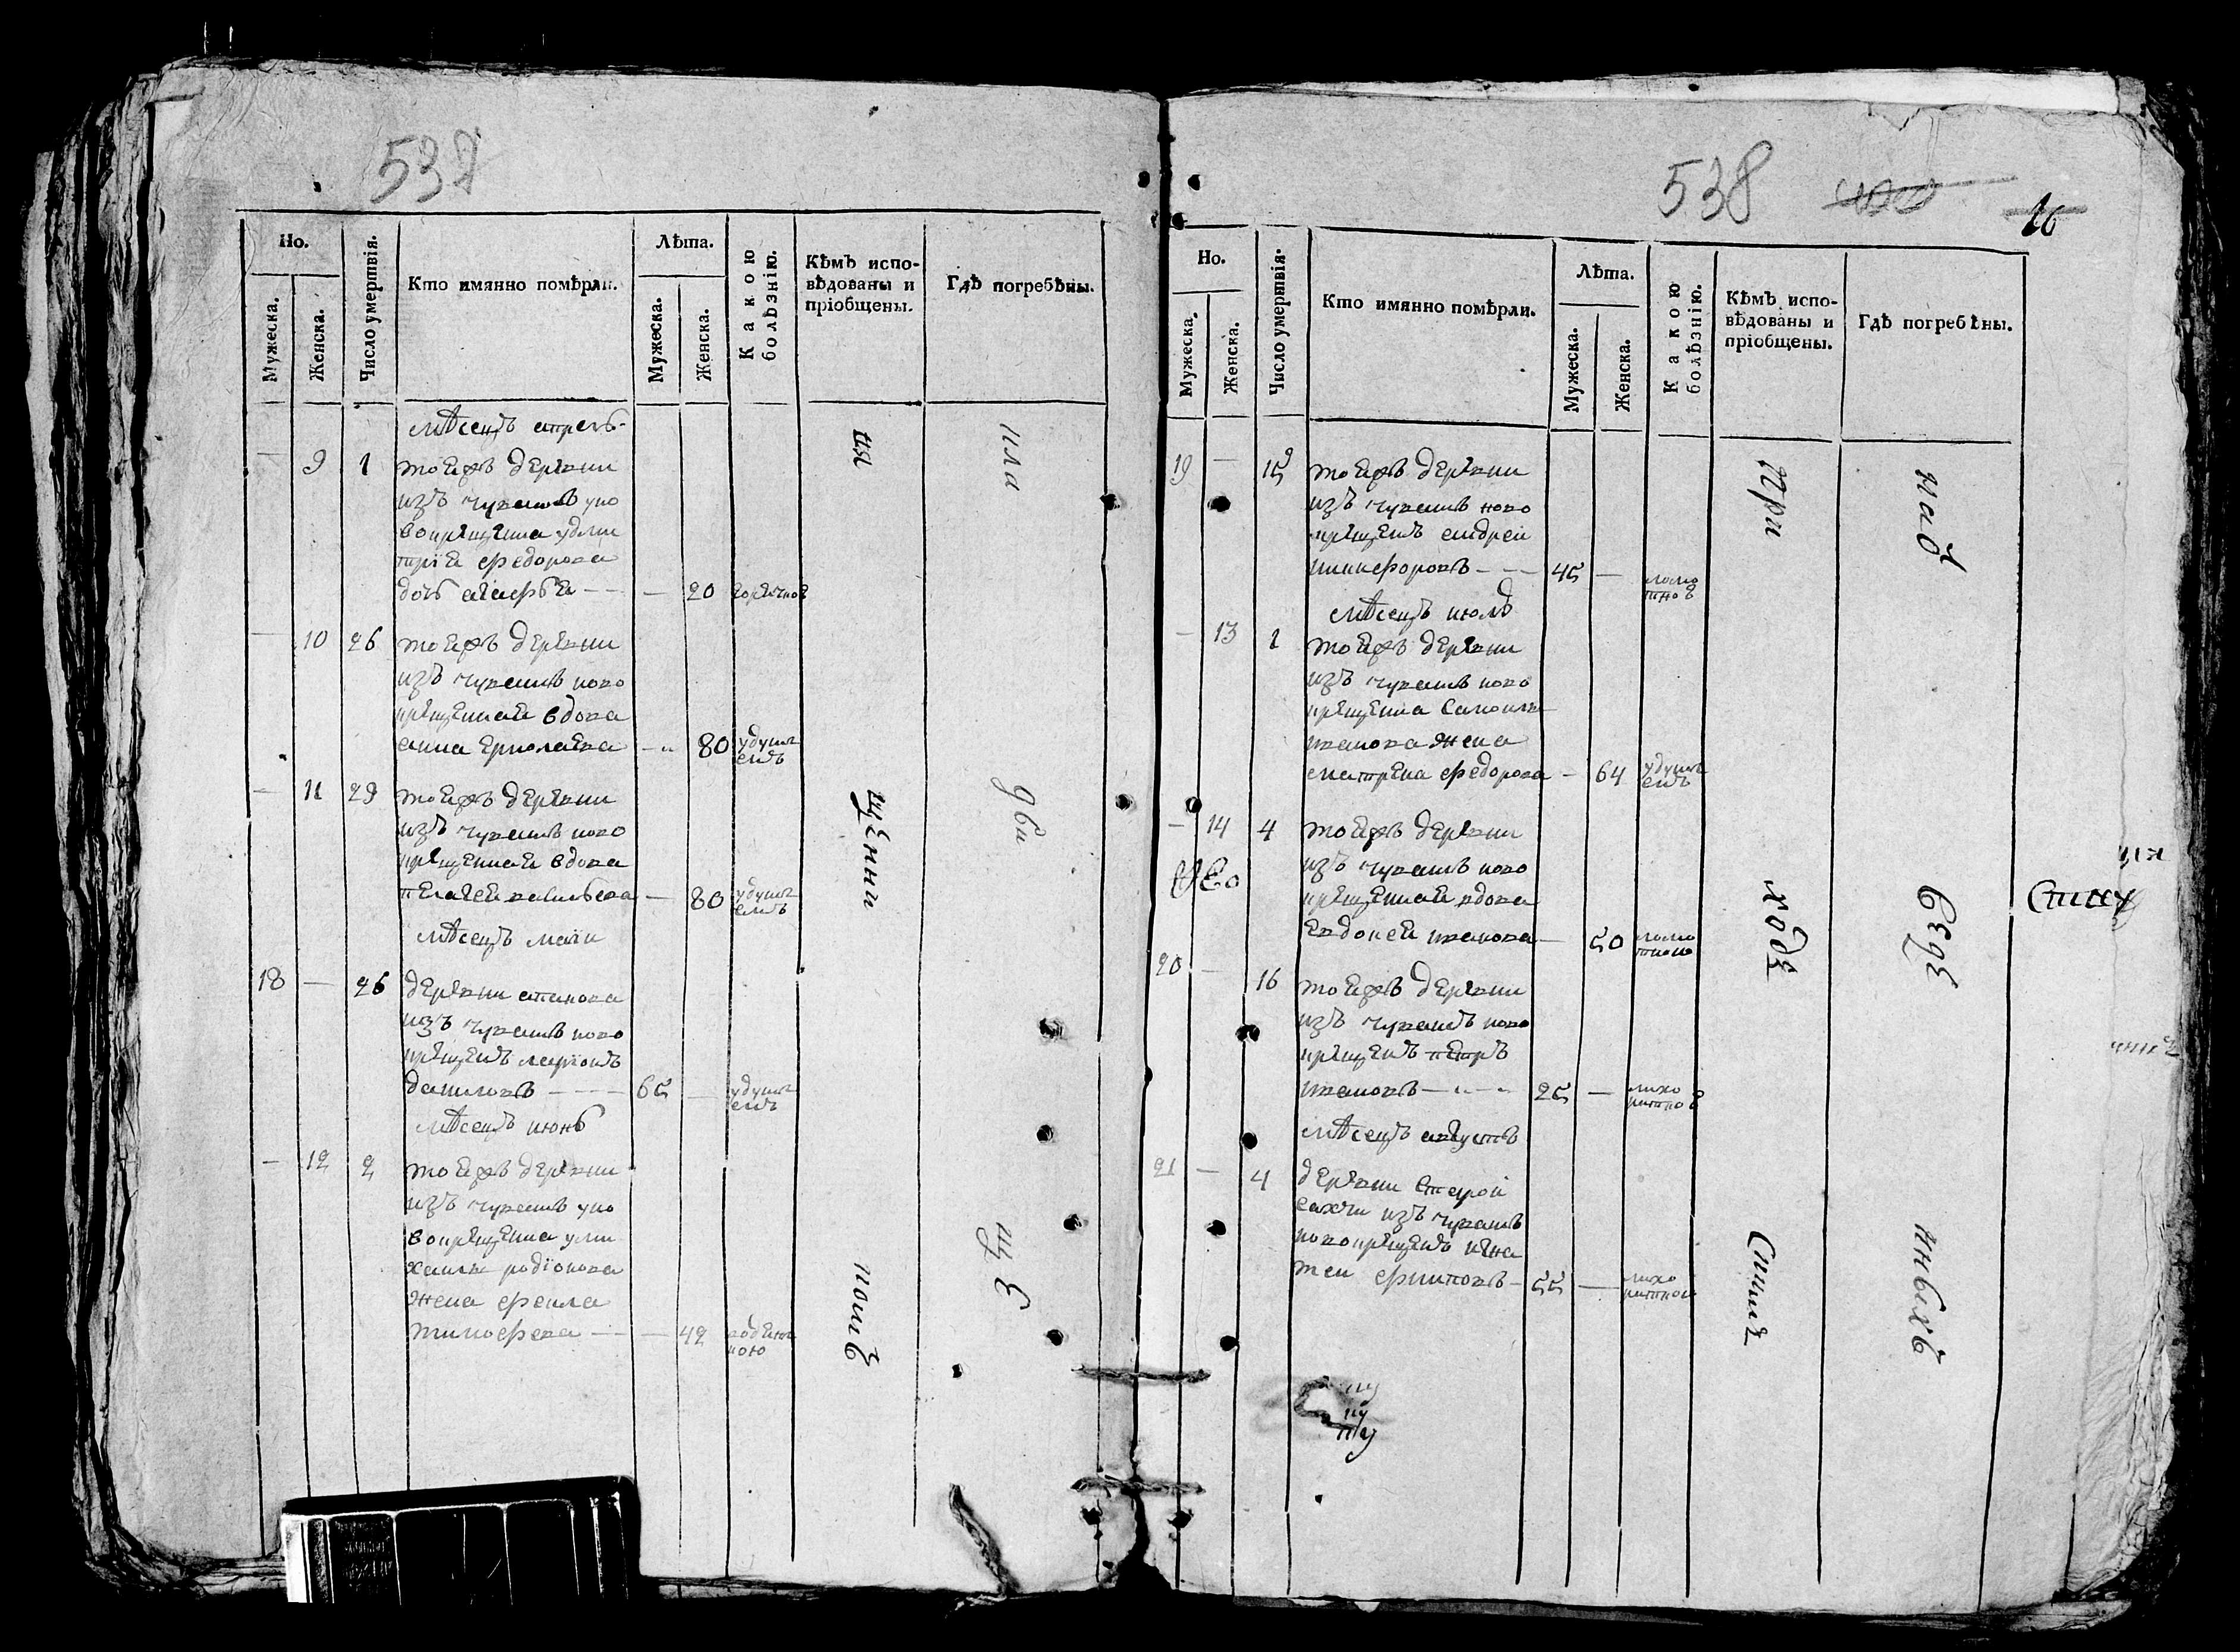 537
Но.
Мужеска.
Женска.
Число умертвія.
Кто имянно помѣрли.
Лѣта.
Мужеска.
Женска.
Какою болѣзнію.
Кѣмъ испо-
вѣдованы и
пріобщены.
Гдѣ погребѣны.
мѣсецъ апрель
— 9 1 тоежъ деревни
изъ чувашъ уно
вокрещена удми
трие федорова
дочь — — 20 горячкое
— 10 26 тоежъ деревни
изъ чувашъ ново
крещеная вдова
анна ермолаева — 80 удуш
емъ
— 11 29 тоежъ деревни
изъ чувашъ ново
крещеная вдова
пелагея васильева — 80 удуш
емъ
мѣсецъ маии
18 — 26 деревни
изъ чувашъ ново
крещенъ ларионъ
даниловъ — 65 — удуш
емъ
мѣсецъ июнь
— 12 2 тоежъ деревни
изъ чувашъ уно
вокрещена уми
хаила родіонова
жена фекла
тимофева — — 42 водяною
ния
щении
тоиъ
538
16
Но.
Мужеска.
Женска.
Число умертвія.
Кто имянно помѣрли.
Лѣта.
Мужеска.
Женска.
Какою болѣзнію.
Кѣмъ испо-
вѣдованы и
пріобщены.
Гдѣ погребѣны.
19 — 15 тоежъ деревни
изъ чувашъ ново
крещенъ андреи
никифоровъ — 45 — ломо
тное
мѣсецъ июль
— 13 1 тоежъ деревни
изъ чувашъ ново
крещена самоила
иванова жена
матрена федорова — 64 удуш
емъ
— 14 4 тоежъ деревни
изъ чувашъ ново
крещеная вдова
евдокея иванова — 50 ломо
тною
20 — 16 тоежъ деревни
изъ чувашъ ново
крещенъ петръ
ивановъ — 25 — лихо
раткое
мѣсецъ августъ
21 — 4 деревни старой
сахчи изъ чувашъ
новокрещенъ игна
теи филиповъ — 55 — лихо
раткою
При
ходѣ
над
везде
иныхъ